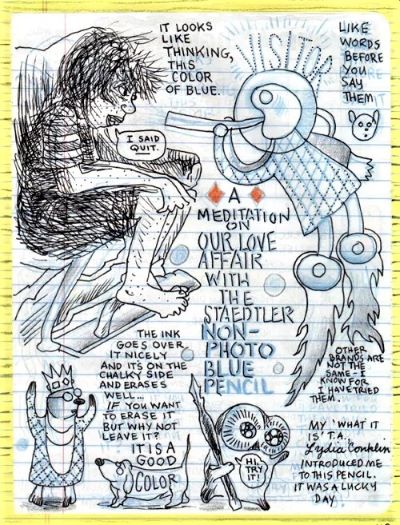 IT LOOKS
LIKE
THINKING,
THIS
COLOR
OF BLUE.
LIKE
WORDS
BEFORE
YOU
SAY
THEM
VISITOR
I SAID
QUIT.
A
MEDITATION
ON
OUR LOVE
AFFAIR
WITH
THE
STAEDTLER
NON-
PHOTO
BLUE
PENCIL
THE INK
GOES OVER
IT NICELY
AND IT'S ON THE
CHALKY SIDE
AND ERASES
WELL...
IF YOU WANT
TO ERASE IT
BUT WHY NOT
LEAVE IT?
IT IS A
GOOD
COLOR
HI,
TRY
IT!
OTHER
BRANDS ARE
NOT THE
SAME - I
KNOW FOR
I HAVE TRIED
THEM.
MY 'WHAT IT
IS' T.A.
Lydia Conklin
INTRODUCED ME
TO THIS PENCIL.
IT WAS A LUCKY
DAY